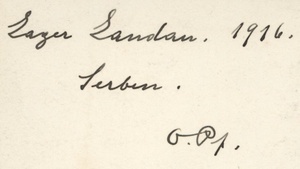 Lager Landau. 1916.
Serben.
O. Pf.